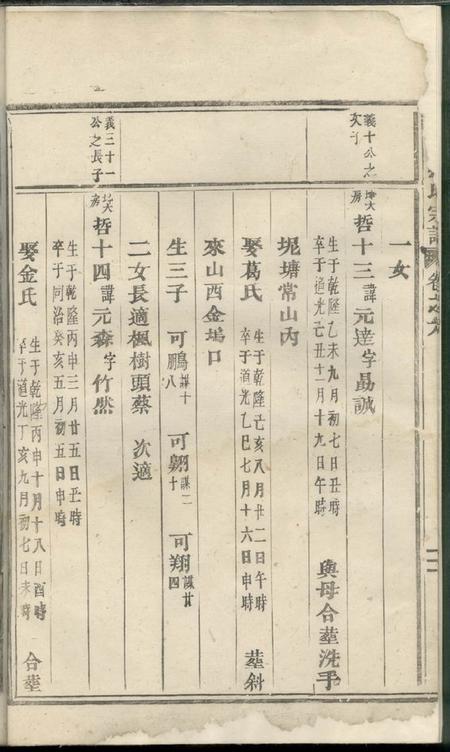 氏宗譜 卷之
一女
義十公之
次子
大
房 哲十三諱元達字勗誠
生于乾隆乙未九月初七日丑時
卒于道光己丑十二月十九日午時
與母合塟洗手
坭塘常山內
娶葛氏
生于乾隆己亥八月廿二日午時
卒于道光乙巳七月十六日申時
塟斜
來山西金塢口
生三子 可鵬謀十八 可翺謀二十 可翔謀廿四
二女長適楓樹頭蔡 次適
義三十一
公之長子
大
房 哲十四諱元森字竹然
生于乾隆丙申三月廿五日丑時
卒于同治癸亥五月初五日申時
娶金氏
生于乾隆丙申十月十八日酉時
卒于道光丁亥九月初七日未時
合塟